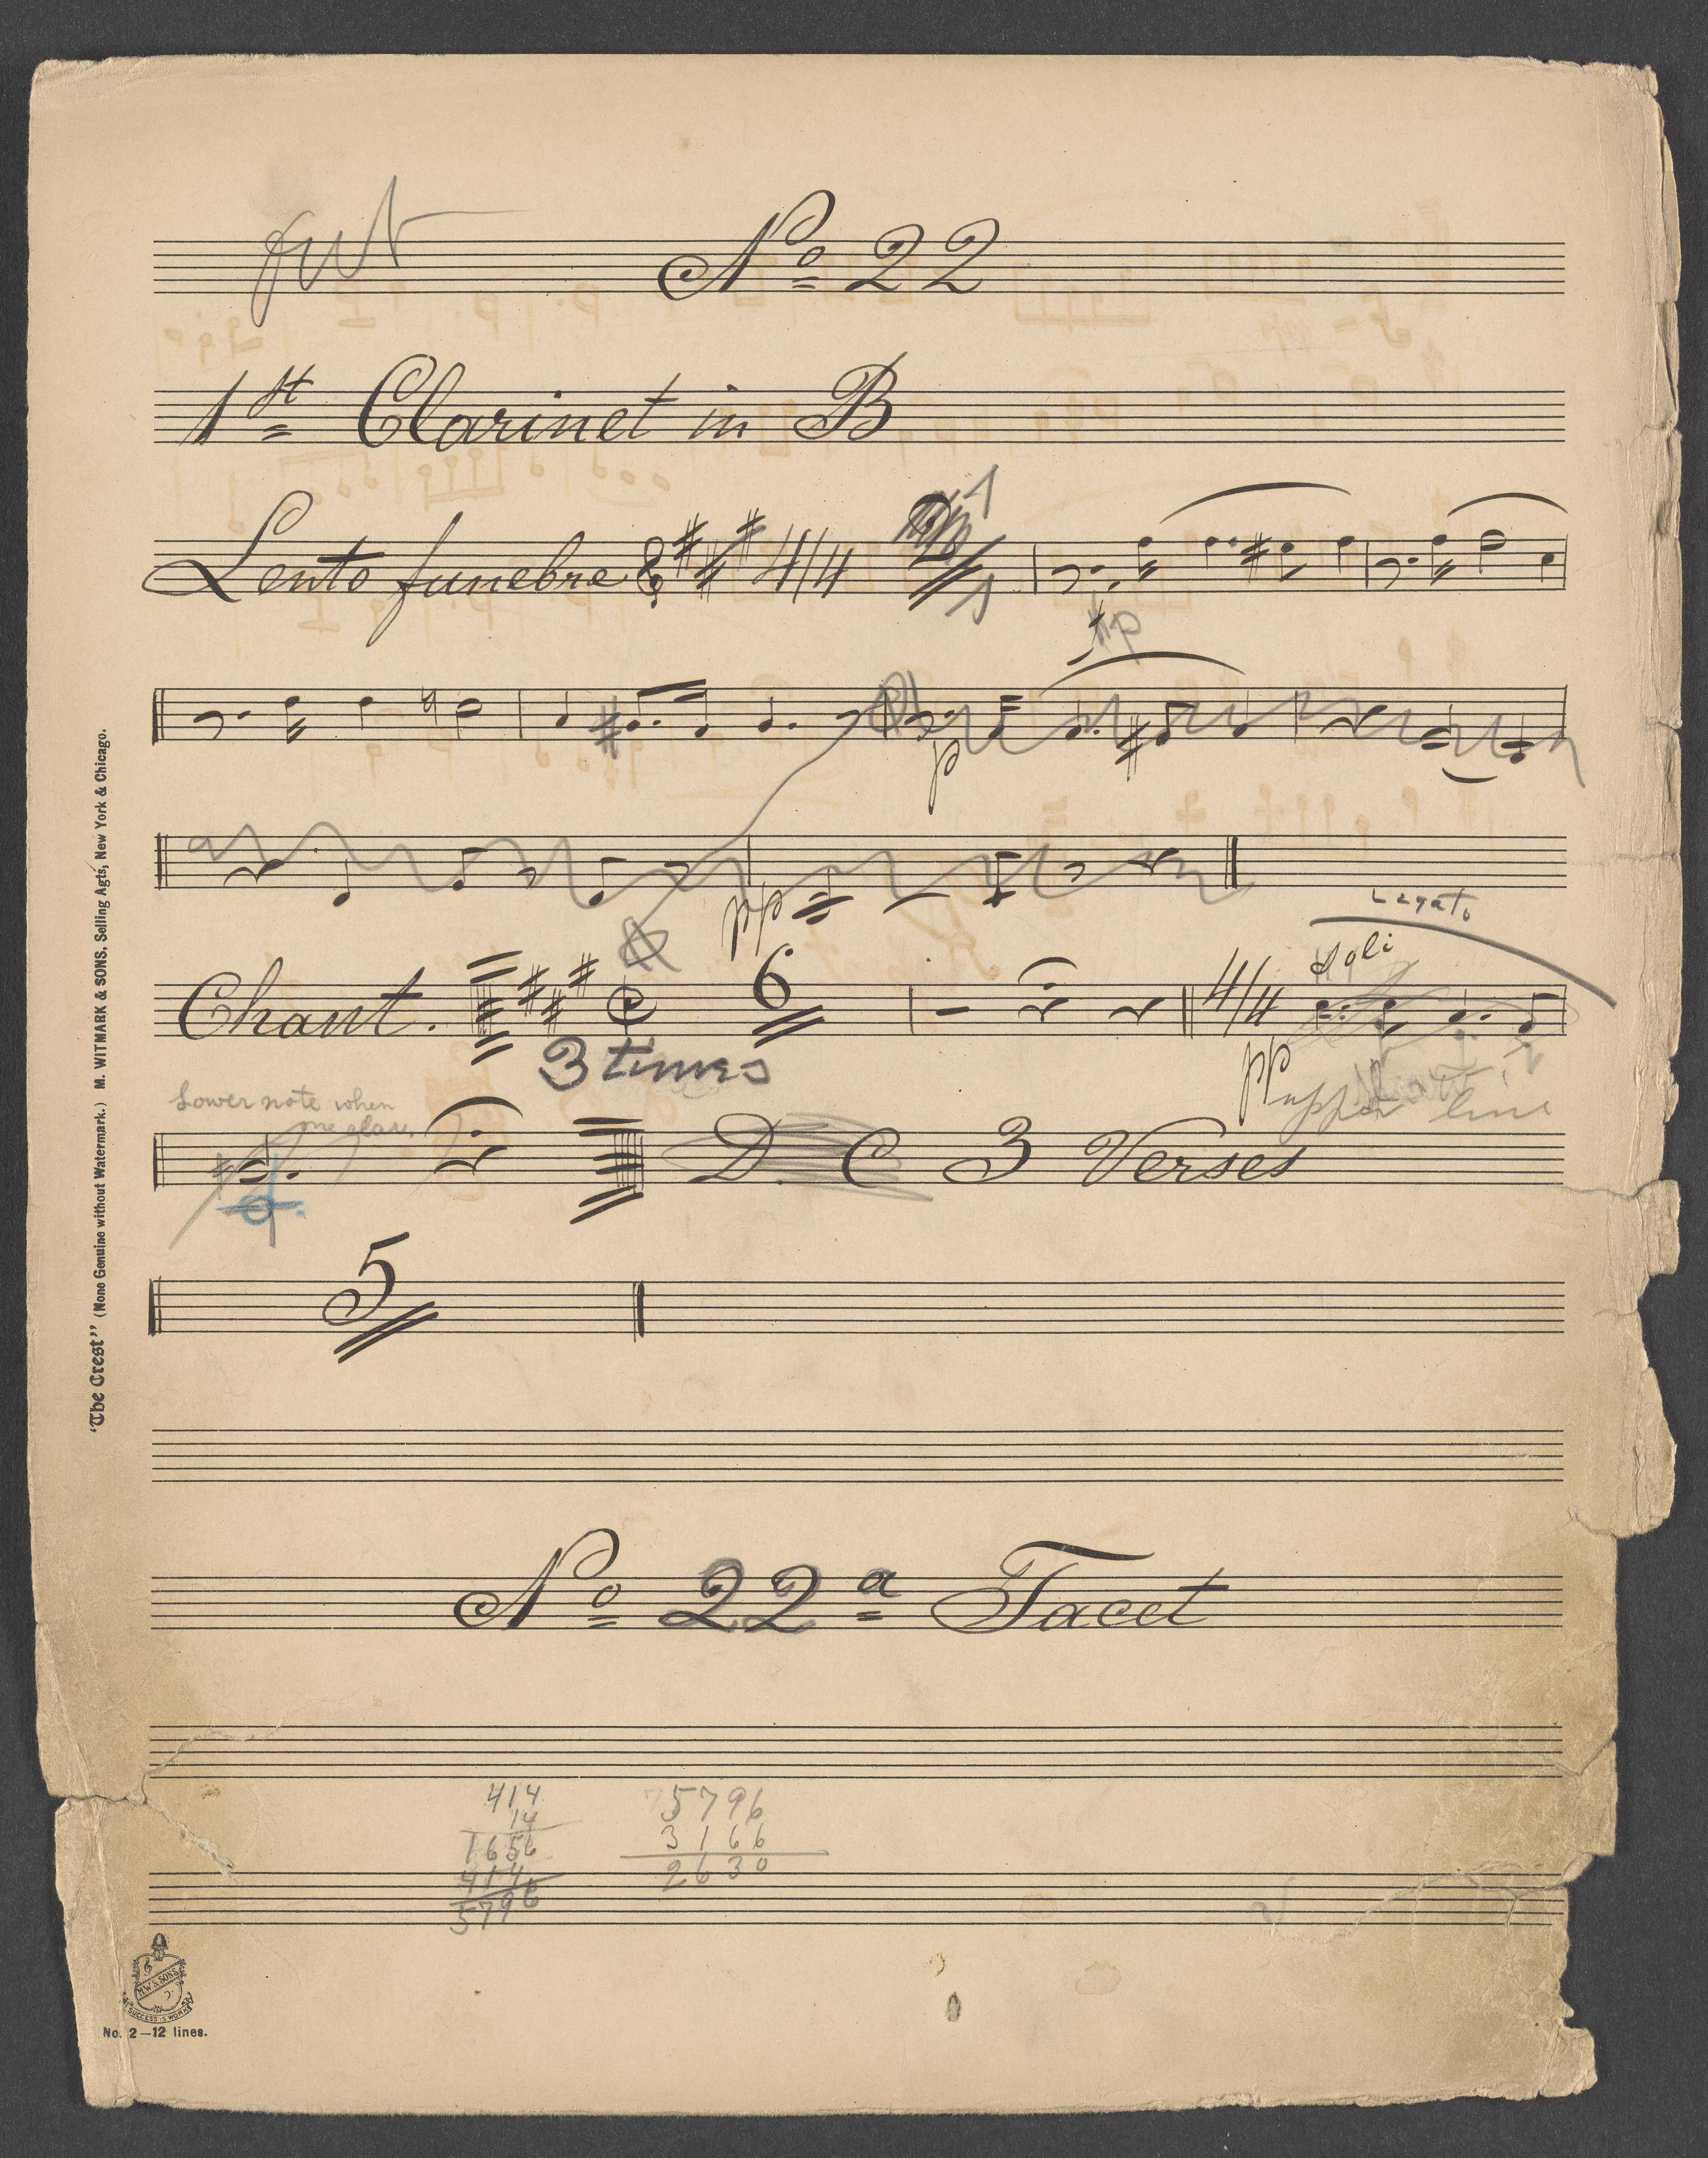 cut
No 22
1st Clarinet in B
Lento funebre 4/4 1
1
p
p
pp
Legato
Soli
Chant. 6 4/4
3 times
pp upper line
Lower note when
one plays
D. C 3 Verses
5
No 22a Tacet
414
14
1656
414
5796
5796
3166
2630
"The Crest" (None Genuine without Watermark.) M. WITMARK & SONS, Selling Agts, New York & Chicago.
M.W. & SONS
SUCCESS IS WORK
No. 2—12 lines.